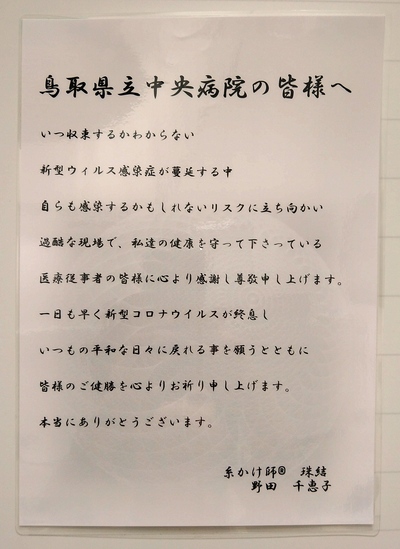 鳥取県立中央病院の皆様へ
いつ収束するかわからない
新型ウィルス感染症が蔓延する中
自らも感染するかもしれないリスクに立ち向かい
過酷な現場で、私達の健康を守って下さっている
医療従事者の皆様に心より感謝し尊敬申し上げます。
一日も早く新型コロナウイルスが終息し
いつもの平和な日々に戻れる事を願うとともに
皆様のご健勝を心よりお祈り申し上げます。
本当にありがとうございます。
糸かけ師® 珠結
野田 千恵子